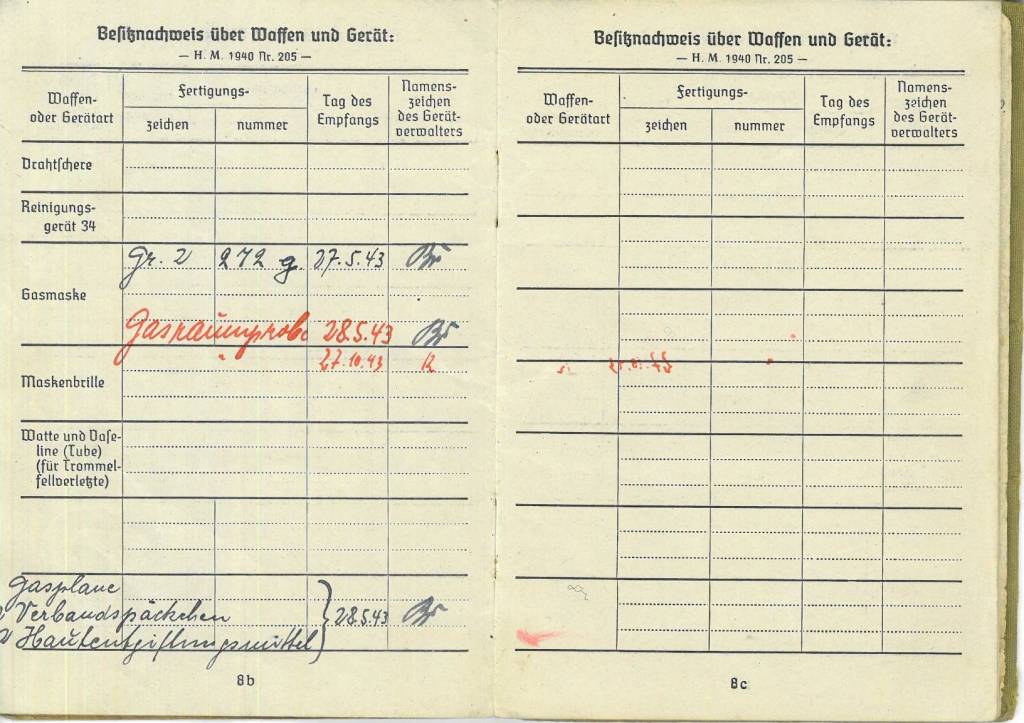 Besitznachweis über Waffen und Gerät:
— H. M. 1940 Nr. 205 —
Waffen-
oder Gerätart
Fertigungs-
zeichen
nummer
Tag des
Empfangs
Namens-
zeichen
des Gerät-
verwalters
Drahtschere
Reinigungs-
gerät 34
Gasmaske
Gr. 2 272 g. 27.5.43
Gasraumprobe 28.5.43
" 27.10.43 R
Maskenbrille
Watte und Vase-
line (Tube)
(für Trommel-
fellverletzte)
Gasplane
2 Verbandspäckchen 28.5.43
Hautentgiftungsmittel
8b
Besitznachweis über Waffen und Gerät:
— H. M. 1940 Nr. 205 —
Waffen-
oder Gerätart
Fertigungs-
zeichen
nummer
Tag des
Empfangs
Namens-
zeichen
des Gerät-
verwalters
8c